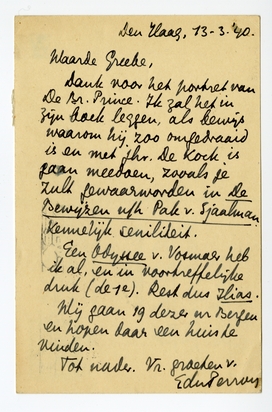 Den Haag, 13-3-'40.
Waarde Greebe,
Dank voor het portret van
De Br. Prince. Ik zal het in
zijn boek leggen, als bewijs
waarom hij zoo omgedraaid
is en met jhr. De Kock is
gaan meedoen, zooals je
zult gewaarworden in De
Bewijzen uit het Pak v. Sjaalman.
Kennelijk seniliteit.
Een Odyssee v. Vosmaer heb
ik al, en in voortreffelijke
druk (de 1e). Rest dus Ilias.
Wij gaan 19 dezer nr Bergen
en hopen daar een huis te
vinden.
Tot nader. Vr. groeten v.
EduPerron